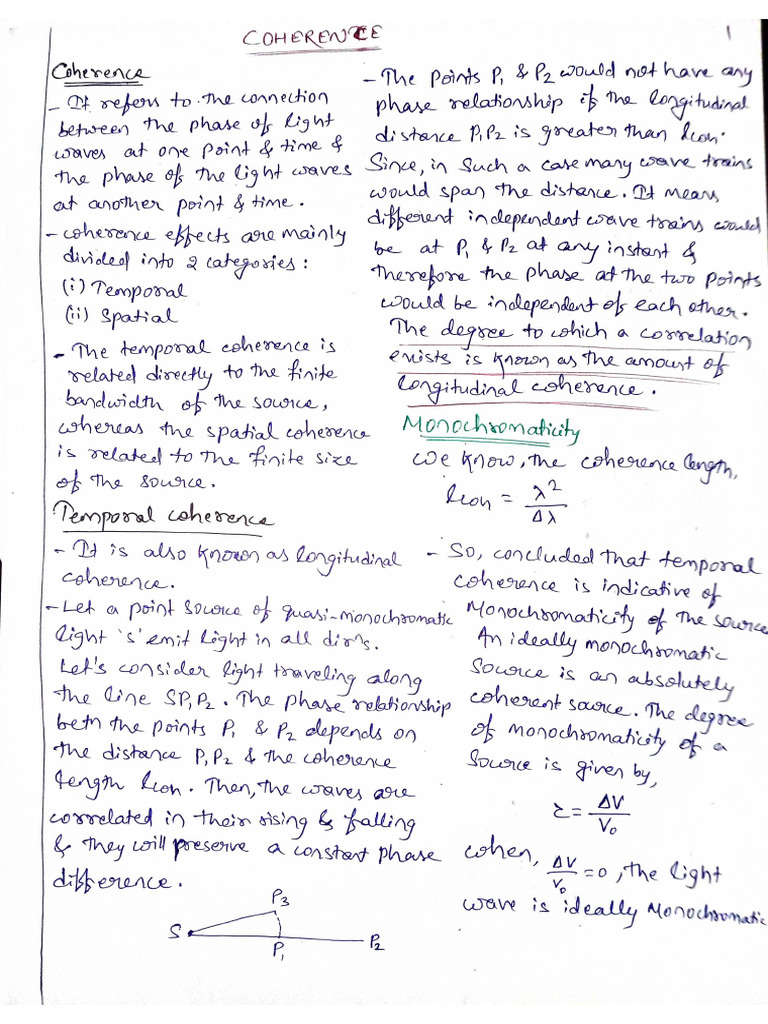 COHERENCE
1
Coherence
- It refers to the connection
between the phase of light
waves at one point & time &
the phase of the light waves
at another point & time.
- coherence effects are mainly
divided into 2 categories:
(i) Temporal
(ii) Spatial
- The temporal coherence is
related directly to the finite
bandwidth of the source,
whereas the spatial coherence
is related to the finite size
of the source.
Temporal coherence
- It is also known as longitudinal
coherence.
- Let a point source of quasi-monochromatic
light 's' emit light in all dirⁿs.
Let's consider light traveling along
the line SP₁P₂. The phase relationship
betn the points P₁ & P₂ depends on
the distance P₁P₂ & the coherence
length lcon. Then, the waves are
correlated in their rising & falling
& they will preserve a constant phase
difference.
S P₃ P₁ P₂
- The points P₁ & P₂ would not have any
phase relationship if the longitudinal
distance P₁P₂ is greater than lcon.
Since, in such a case many wave trains
would span the distance. It means
different independent wave trains would
be at P₁ & P₂ at any instant &
therefore the phase at the two points
would be independent of each other.
The degree to which a correlation
exists is known as the amount of
longitudinal coherence.
Monochromaticity
We know, the coherence length,
lcon = λ²/Δλ
- So, concluded that temporal
coherence is indicative of
Monochromaticity of the source
An ideally monochromatic
source is an absolutely
coherent source. The degree
of monochromaticity of a
source is given by,
ξ = ΔV/V₀
When, ΔV/V₀ = 0, the light
wave is ideally Monochromatic